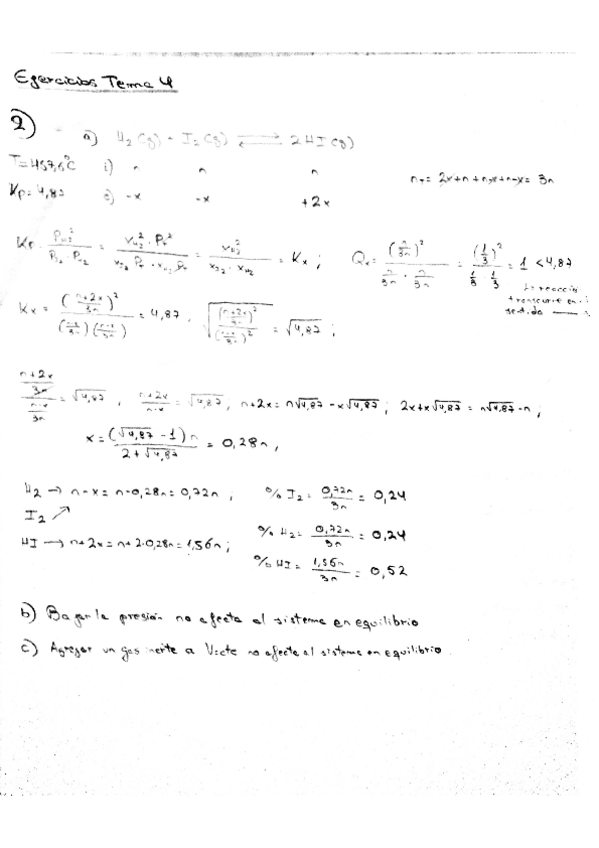 Ejercicios Tema 4
2)
a) H2 (g) + I2 (g) ⇌ 2HI (g)
T= 457,6°C i) n n n nT= 2x+n+n-x+n-x= 3n
Kp= 4,87 e) -x -x +2x
Kp= = = = Kx ; Qx= (n/3n)^2 / (n/3n · n/3n) = (1/3)^2 / (1/3 · 1/3) = 1 < 4,87
La reacción
transcurre en
sentido →
Kx = ((n+2x)/3n)^2 / ((n-x)/3n)((n-x)/3n) = 4,87 . √(((n+2x)/3n)^2 / ((n-x)/3n)^2) = √4,87 ;
((n+2x)/3n) / ((n-x)/3n) = √4,87 , (n+2x)/(n-x) = √4,87 ; n+2x= n√4,87 - x√4,87 ; 2x+x√4,87 = n√4,87 - n ;
x = (√4,87 - 1)n / (2+√4,87) = 0,28n ,
H2 → n-x= n-0,28n= 0,72n , % I2= 0,72n/3n = 0,24
I2 ↗
% H2= 0,72n/3n = 0,24
HI → n+2x= n+2·0,28n= 1,56n ;
% HI= 1,56n/3n = 0,52
b) Bajar la presión no afecta al sistema en equilibrio
c) Agregar un gas inerte a V=cte no afecta al sistema en equilibrio.